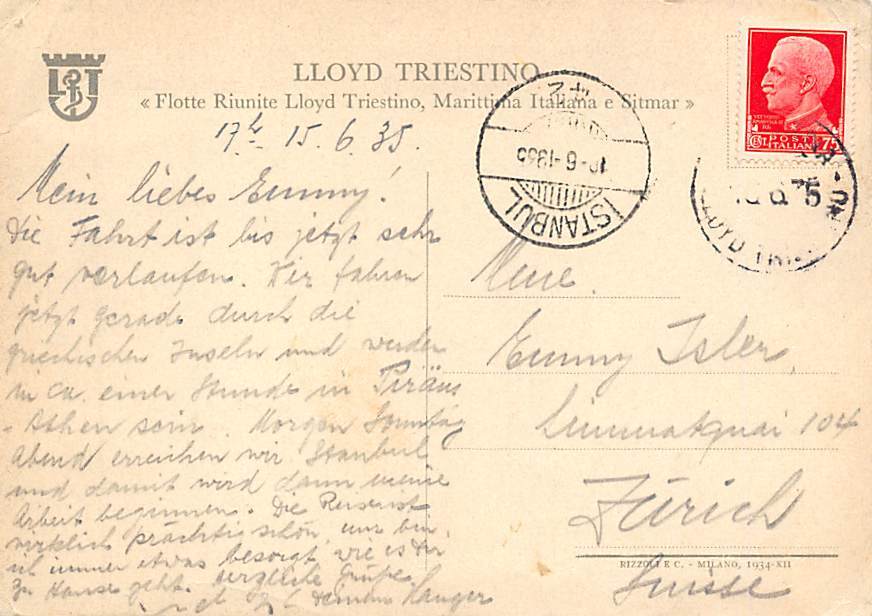 LLOYD TRIESTINO
« Flotte Riunite Lloyd Triestino, Marittima Italiana e Sitmar »
LT
17h 15.6.35.
Mein liebes Emmy!
Die Fahrt ist bis jetzt sehr
gut verlaufen. Wir fahren
jetzt gerade durch die
griechischen Inseln und werden
in ca. einer Stunde in Piräus
-Athen sein. Morgen Sonntag
Abend erreichen wir Stanbul
und damit wird dann meine
Arbeit beginnen. Die Reise ist
wirklich prächtig schön, nur bin
ich immer etwas besorgt wie es dir
zu Hause geht. Herzliche Grüße
deinem Hanger
ISTANBUL
-6-1935
VITTORIO
EMANUELE III
RE
POSTE
ITALIANE
75
LLOYD TRI
Mme.
Emmy Isler,
Limmatquai 104
Zürich
Suisse
RIZZOLI E C. - MILANO, 1934-XII